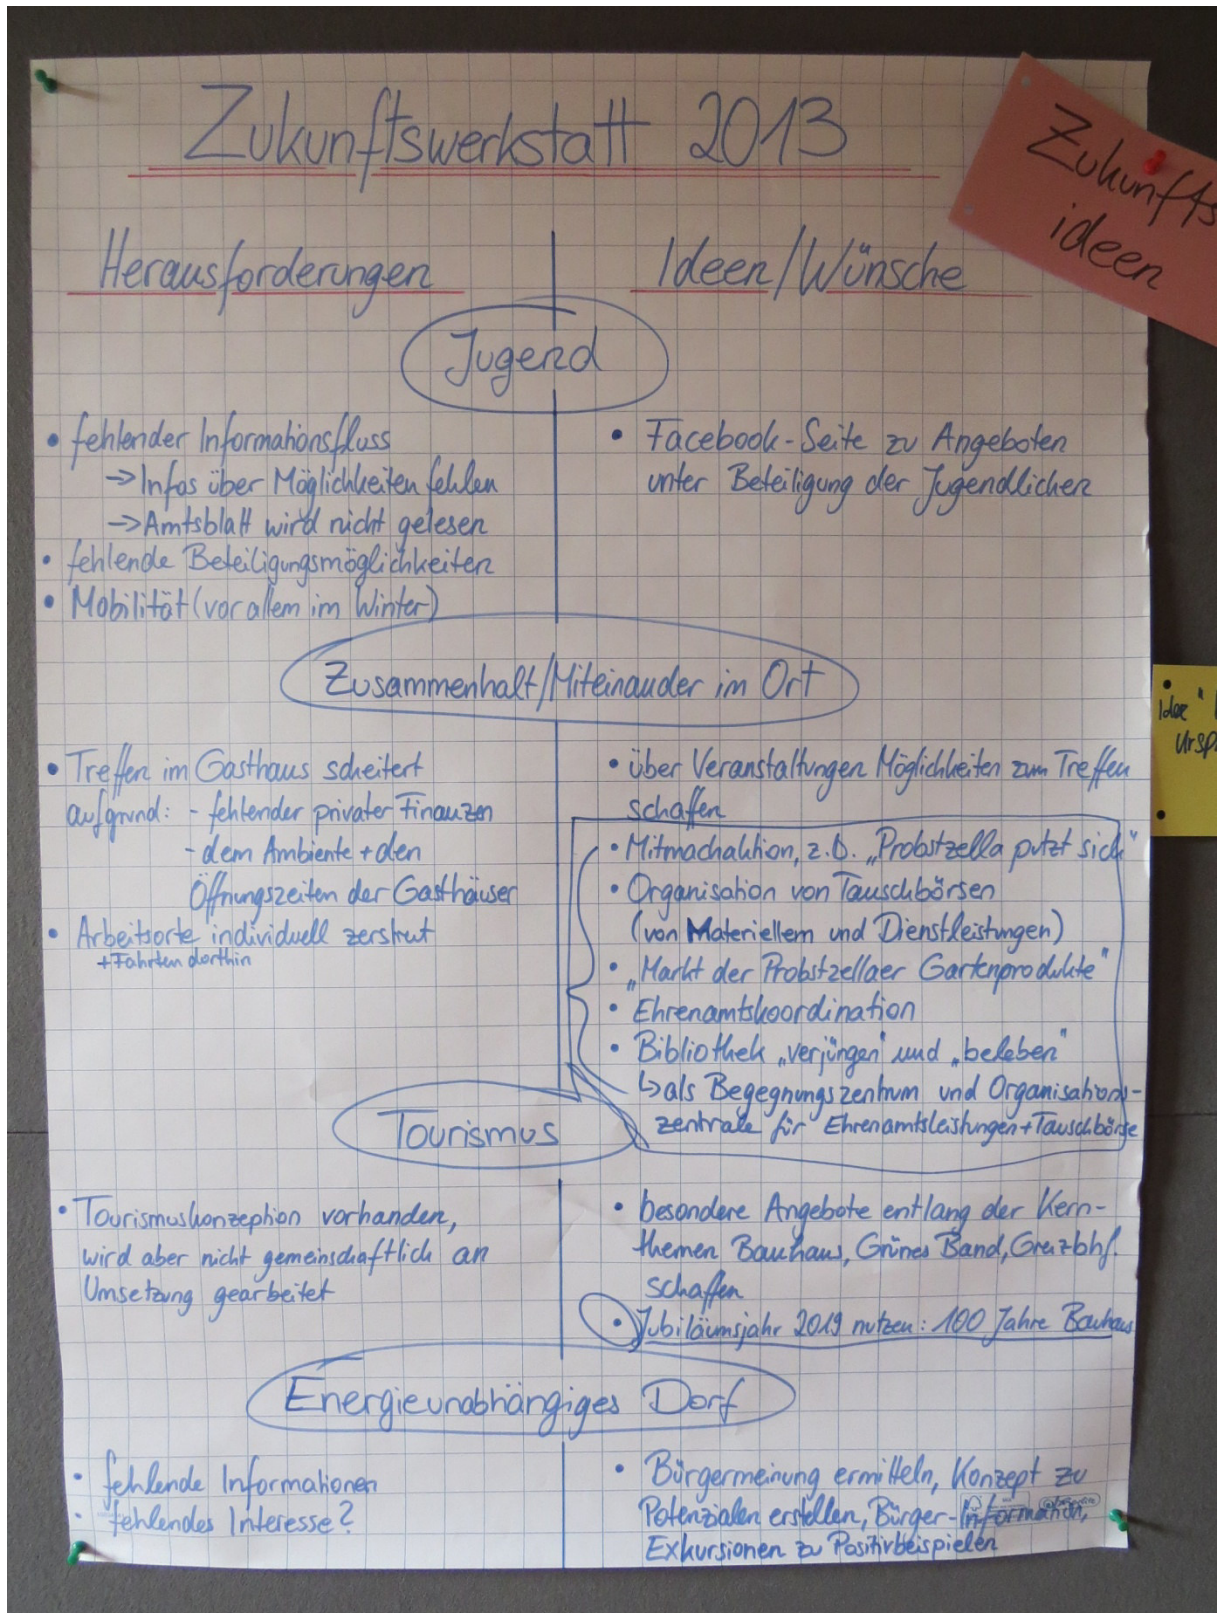 Zukunftswerkstatt 2013
Zukunfts
ideen
Herausforderungen
Ideen/Wünsche
Jugend
• fehlender Informationsfluss
→ Infos über Möglichkeiten fehlen
→ Amtsblatt wird nicht gelesen
• fehlende Beteiligungsmöglichkeiten
• Mobilität (vor allem im Winter)
• Facebook-Seite zu Angeboten
unter Beteiligung der Jugendlichen
Zusammenhalt/Miteinander im Ort
• Treffen im Gasthaus scheitert
aufgrund: - fehlender privater Finanzen
- dem Ambiente + den
Öffnungszeiten der Gasthäuser
• Arbeitsorte individuell zerstreut
+ Fahrten dorthin
• über Veranstaltungen Möglichkeiten zum Treffen
schaffen
• Mitmachaktion, z.B. „Probstzella putzt sich"
• Organisation von Tauschbörsen
(von Materiellem und Dienstleistungen)
• „Markt der Probstzellaer Gartenprodukte"
• Ehrenamtskoordination
• Bibliothek „verjüngen" und „beleben"
↳ als Begegnungszentrum und Organisations-
zentrale für Ehrenamtsleistungen + Tauschbörse
Tourismus
• Tourismuskonzeption vorhanden,
wird aber nicht gemeinschaftlich an
Umsetzung gearbeitet
• besondere Angebote entlang der Kern-
themen Bauhaus, Grünes Band, Grenzbhf.
schaffen
• Jubiläumsjahr 2019 nutzen: 100 Jahre Bauhaus
Energieunabhängiges Dorf
• fehlende Informationen
• fehlendes Interesse?
• Bürgermeinung ermitteln, Konzept zu
Potenzialen erstellen, Bürger-Information,
Exkursionen zu Positivbeispielen